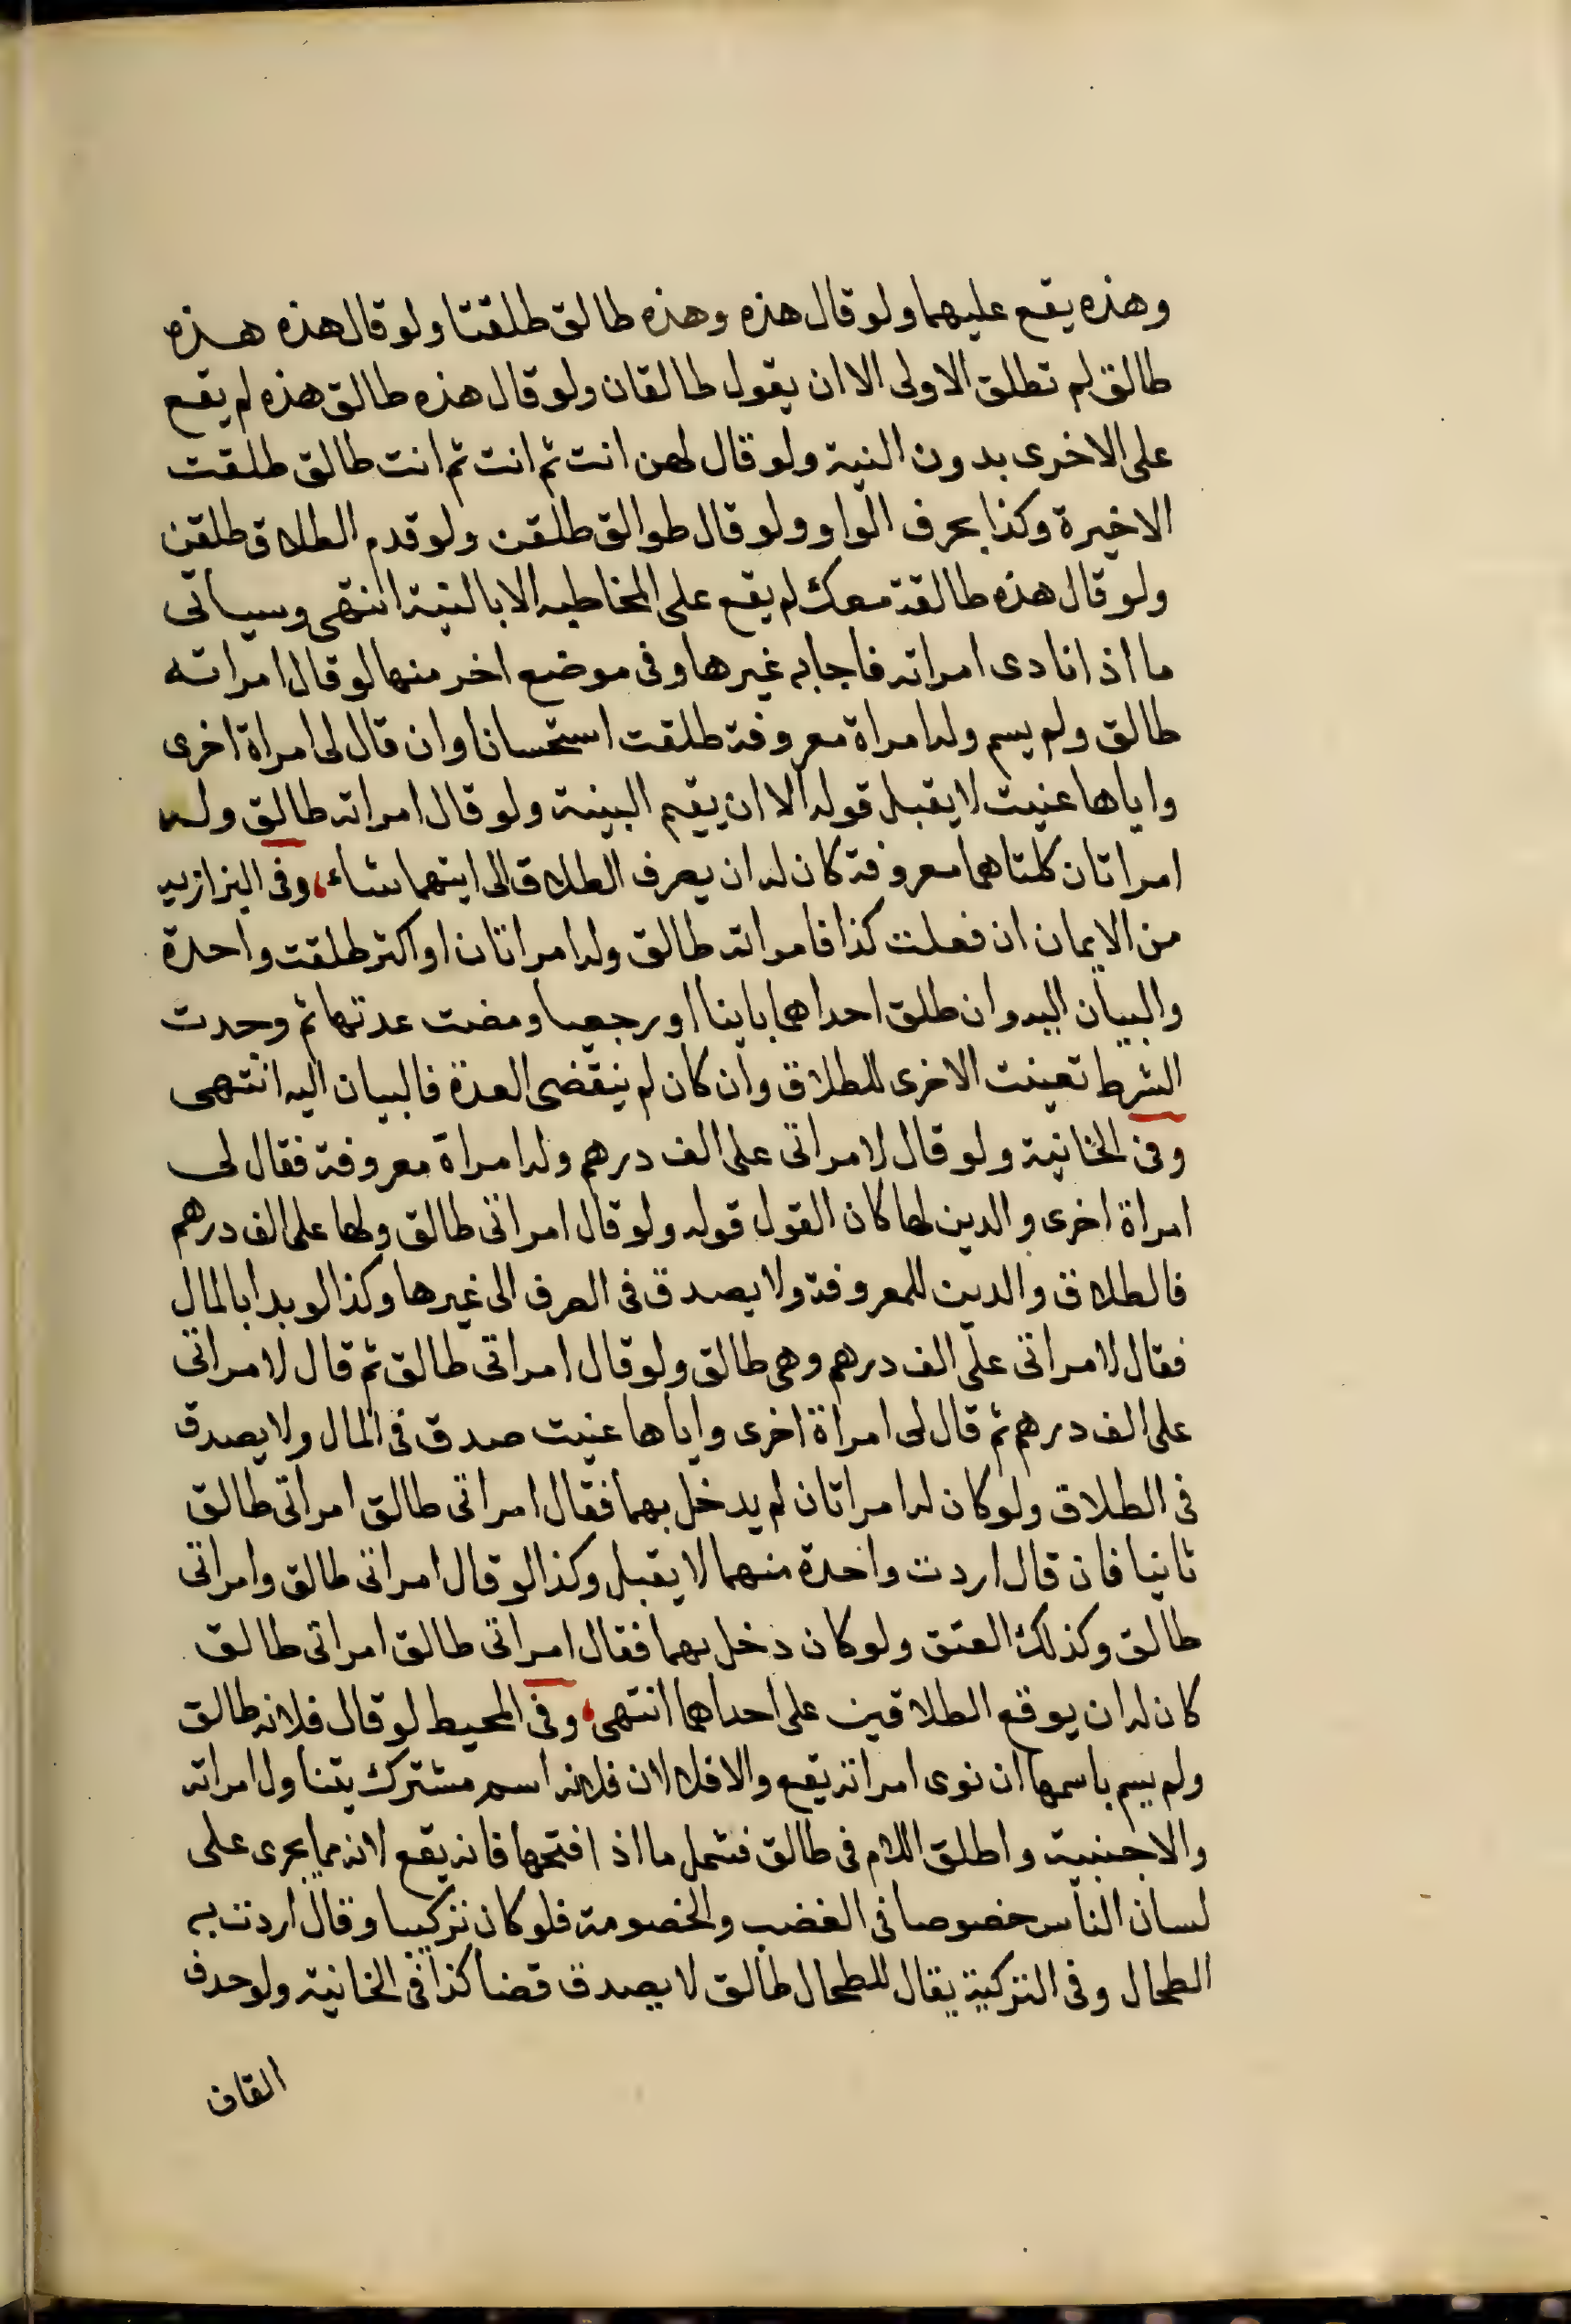 وهذه يقع عليهما ولو قال هذه وهذه طالق طلقتا ولو قال هذه هذه
طالق لم تطلق الاولى الا ان يقول طالقان ولو قال هذه طالق هذه لم يقع
على الاخرى بدون النية ولو قال لهن انت ثم انت ثم انت طالق طلقت
الاخيرة وكذا بحرف الواو ولو قال طوالق طلقن ولو قدم الطلاق طلقن
ولو قال هذه طالقة معك لم يقع على المخاطبه الا بالنية انتهى وسياتى
ما اذا نادى امراته فاجابه غيرها وفى موضع اخر منها لو قال امراته
طالق ولم يسم وله امراة معروفة طلقت استحسانا وان قال لى امراة اخرى
واياها عنيت لا يقبل قوله الا ان يقيم البينة ولو قال امراته طالق وله
امراتان كلتاهما معروفة كان له ان يصرف الطلاق الى ايتهما شاء، وفى البزازيه
من الايمان ان فعلت كذا فامراته طالق وله امراتان او اكثر طلقت واحدة
والبيان اليه وان طلق احداهما باينا او رجعيا ومضت عدتها ثم وجدت
الشرط تعينت الاخرى للطلاق وان كان لم ينقضى العدة فالبيان اليه انتهى
وفى الخانية ولو قال لامراتى على الف درهم وله امراة معروفة فقال لى
امراة اخرى والدين لها كان القول قوله ولو قال امراتى طالق ولها على الف درهم
فالطلاق والدين للمعروفة ولا يصدق فى الصرف الى غيرها وكذا لو بدا بالمال
فقال لامراتى على الف درهم وهى طالق ولو قال امراتى طالق ثم قال لامراتى
على الف درهم ثم قال لى امراة اخرى واياها عنيت صدق فى المال ولا يصدق
فى الطلاق ولو كان له امراتان لم يدخل بهما فقال امراتى طالق امراتى طالق
ثانيا فان قال اردت واحدة منهما لا يقبل وكذا لو قال امراتى طالق وامراتى
طالق وكذلك العتق ولو كان دخل بهما فقال امراتى طالق امراتى طالق
كان له ان يوقع الطلاقين على احداهما انتهى، وفى المحيط لو قال فلانه طالق
ولم يسم باسمها ان نوى امراته يقع والا فلا لان فلانه اسم مشترك يتناول امراته
والاجنبية واطلق اللام فى طالق فشمل ما اذا فتحها فانه يقع لانه مما يجرى على
لسان الناس خصوصا فى الغضب والخصومة فلو كان تركيا وقال اردت به
الطحال وفى التركية يقال للطحال طالق لا يصدق قضا كذا فى الخانية ولو حذف
القاف